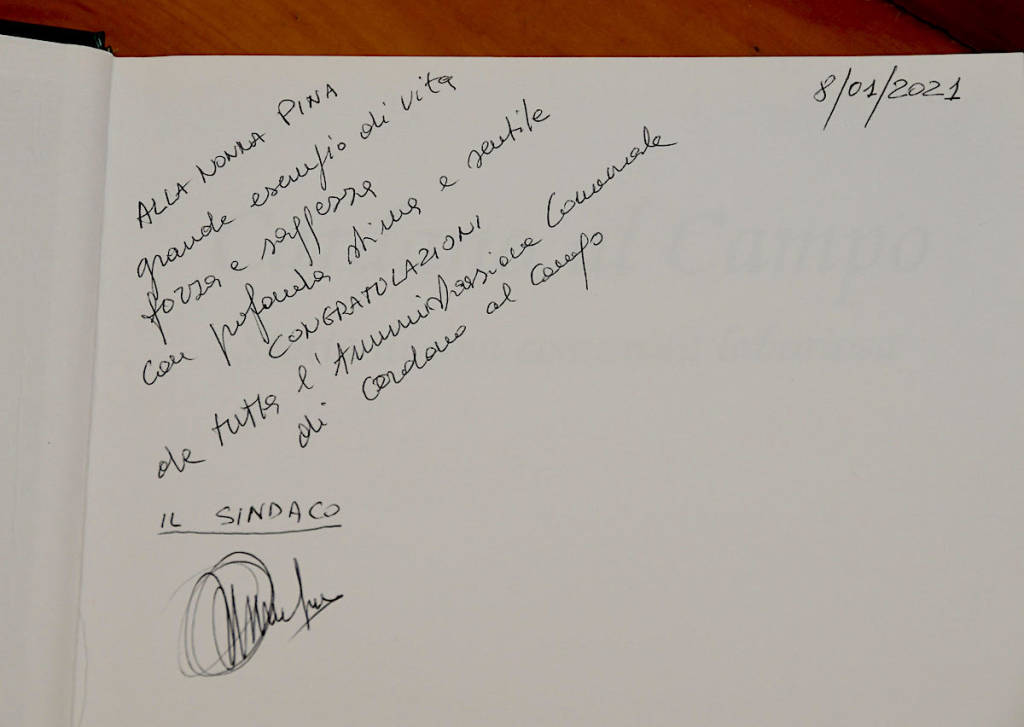 8/01/2021
ALLA NONNA PINA
grande esempio di vita
forza e saggezza
con profonda stima e sentite
CONGRATULAZIONI
da tutta l'Amministrazione Comunale
di Cardano al Campo
IL SINDACO